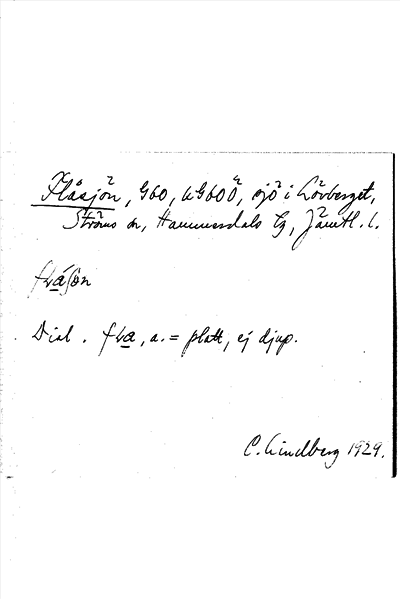 Flåsjön, G60, uG600, sjö i Lövberget,
Ströms sn, Hammerdals tg, Jämtl. l.
flåsön
Dial. fla, a. = platt, ej djup.
C. Lindberg 1929.